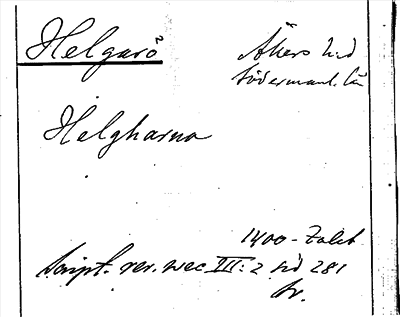 Helgarö
Åkers hd
Södermanl. län
Helgharna
1400-talet
Script. rer. svec III: 2 sid 281
av.